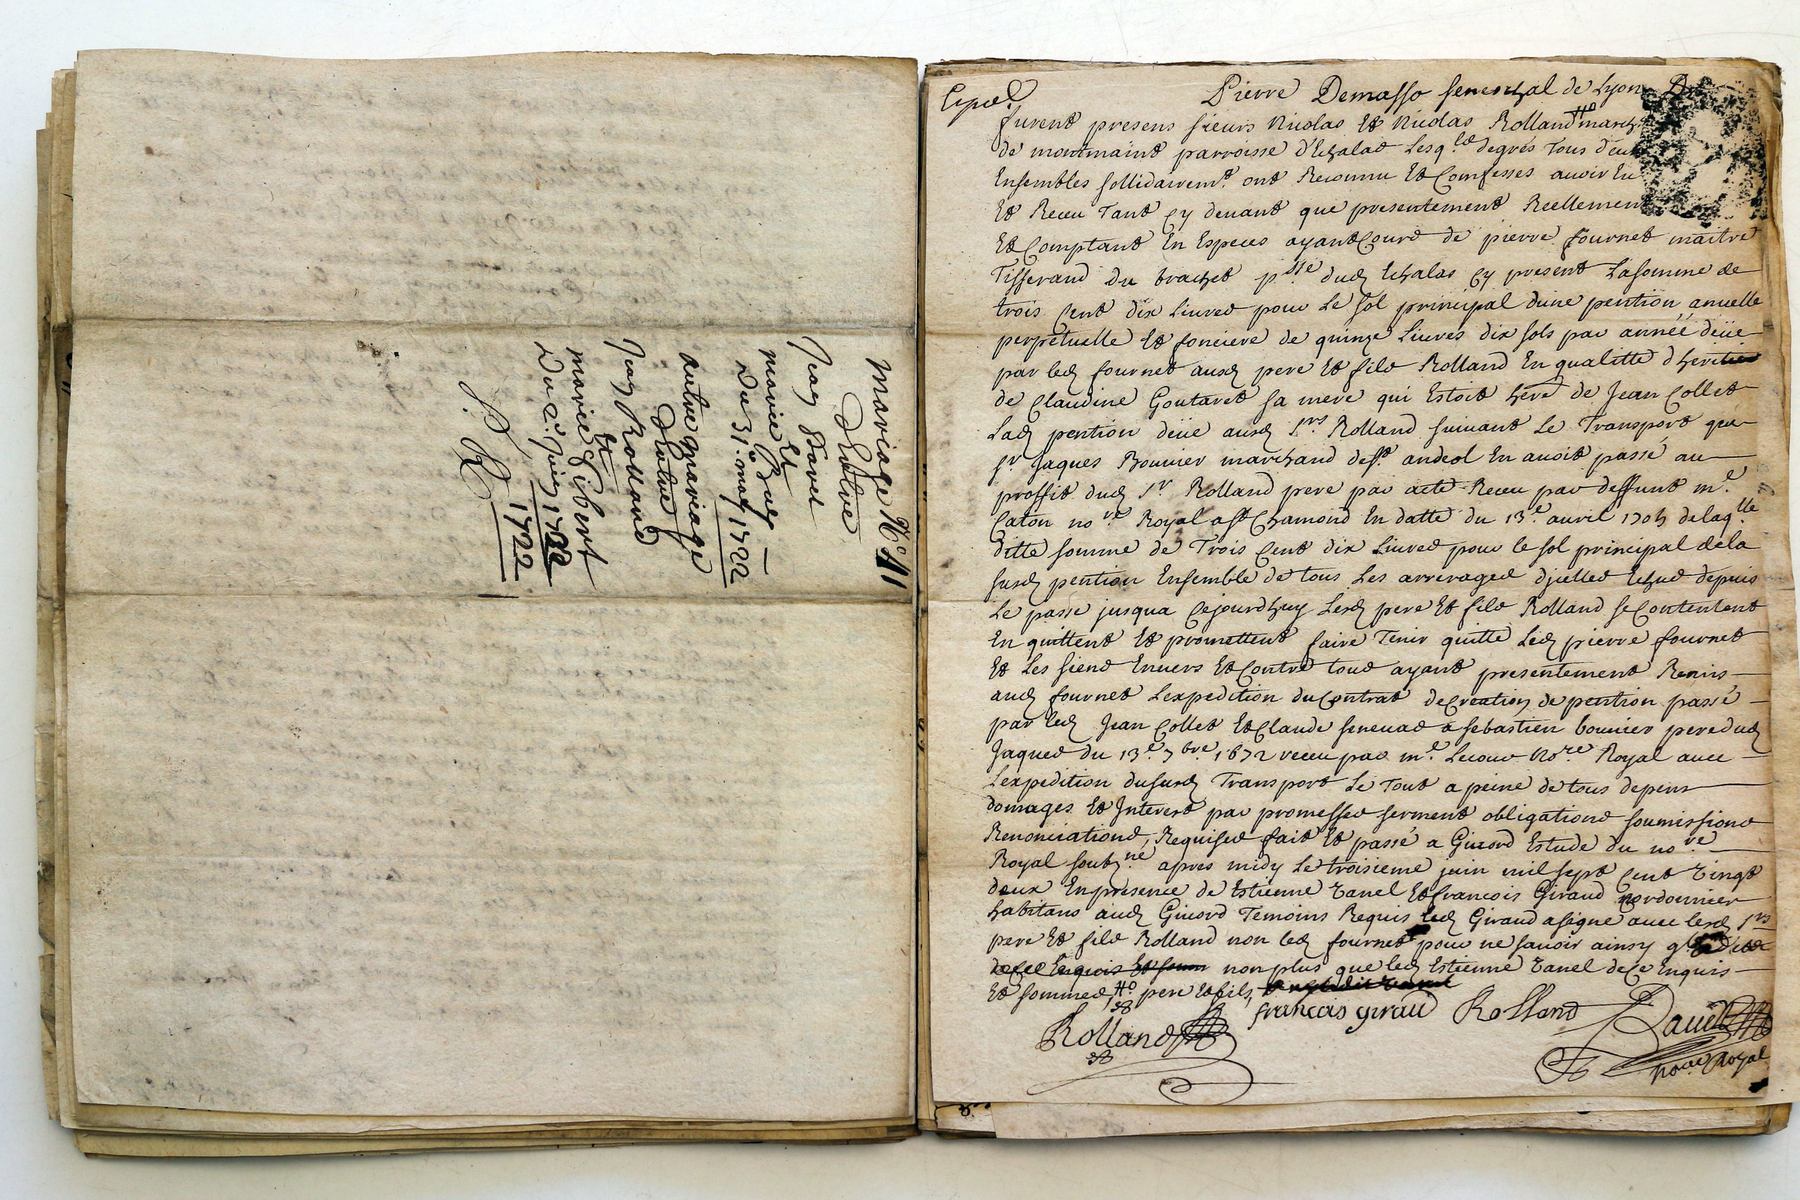 Mariage N° 11
Dentre
Jean Favel
Et
marie Buer
Du 31e may 1722
autre mariage
Dentre
Jean Rolland
Et
marie Gibert
Du 2e Juin 1722
1722
Pierre Demasso seneschal de Lyon
furent presens sieurs Nicolas Et Nicolas Rolland march
de montmaint parroisse d'Echalas Lesqls degrés Tous deux
Ensembles sollidairemt ont Reconnu Et Confesses avoir Eu
Et Receu Tant Cy devant que presentement Reellement
Et Comptant En Especes ayant Cours de pierre fournet maitre
Tisserand du brachet psse dud Echalas Cy present La somme de
trois Cent dix Livres pour Le sol principal dune pention anuelle
perpetuelle Et fonciere de quinze Livres dix sols par année deüe
par led fournet ausd pere Et fils Rolland En qualitte dheritier
de Claudine Goutaret sa mere qui Estoit here de Jean Collet
Lad pention deüe ausd Srs Rolland suivant Le Transport que
sr Jaques Bouvier marchand de st andeol En avoit passé au
proffit dud Sr Rolland pere par acte Receu par deffunt me
Caton nore Royal a st Chamond En datte du 13e avril delaqlle
ditte somme de Trois Cent dix Livres pour le sol principal de la
susd pention Ensemble de tous Les arrerages djcelles Echus depuis
Le passe jusqua Cejourdhuy Lesd pere Et fils Rolland se Contentent
En quittent Et promettent faire Tenir quitte Led pierre fournet
Et Les siens Envers Et Contre tous ayant presentement Remis
aud fournet Lexpedition du Contrat de Creation de pention passé
par led Jean Collet Et Claude seneuas a sebastien bouvier pere dud
Jaques du 13e 7bre 1672 receu par me Lecour Nore Royal avec
Lexpedition du susd Transport Le Tout a peine de tous depens
domages Et Interest par promesses serment obligations soumissions
Renonciations, Requises fait Et passé a Givord Estude du nore
Royal soubzné apres midy Le troisieme juin mil sept Cent vingt
deux En presence de Estienne Tanel Et francois Giraud Cordonnier
habitans aud Givord Temoins Requis Led Giraud a signe avec lesd Srs
pere Et fils Rolland non led fournet pour ne savoir ainsy
non plus que led Estienne Tanel de Ce Enquis
Et sommes pere Et fils
Rolland francois giraud Rolland
nore Royal